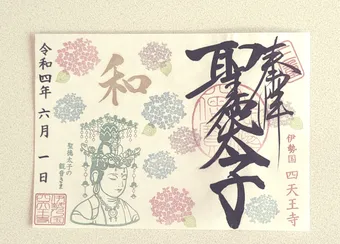 奉拝
聖徳太子
伊勢国 四天王寺
和
聖徳太子の
観音さま
令和四年 六月 一日